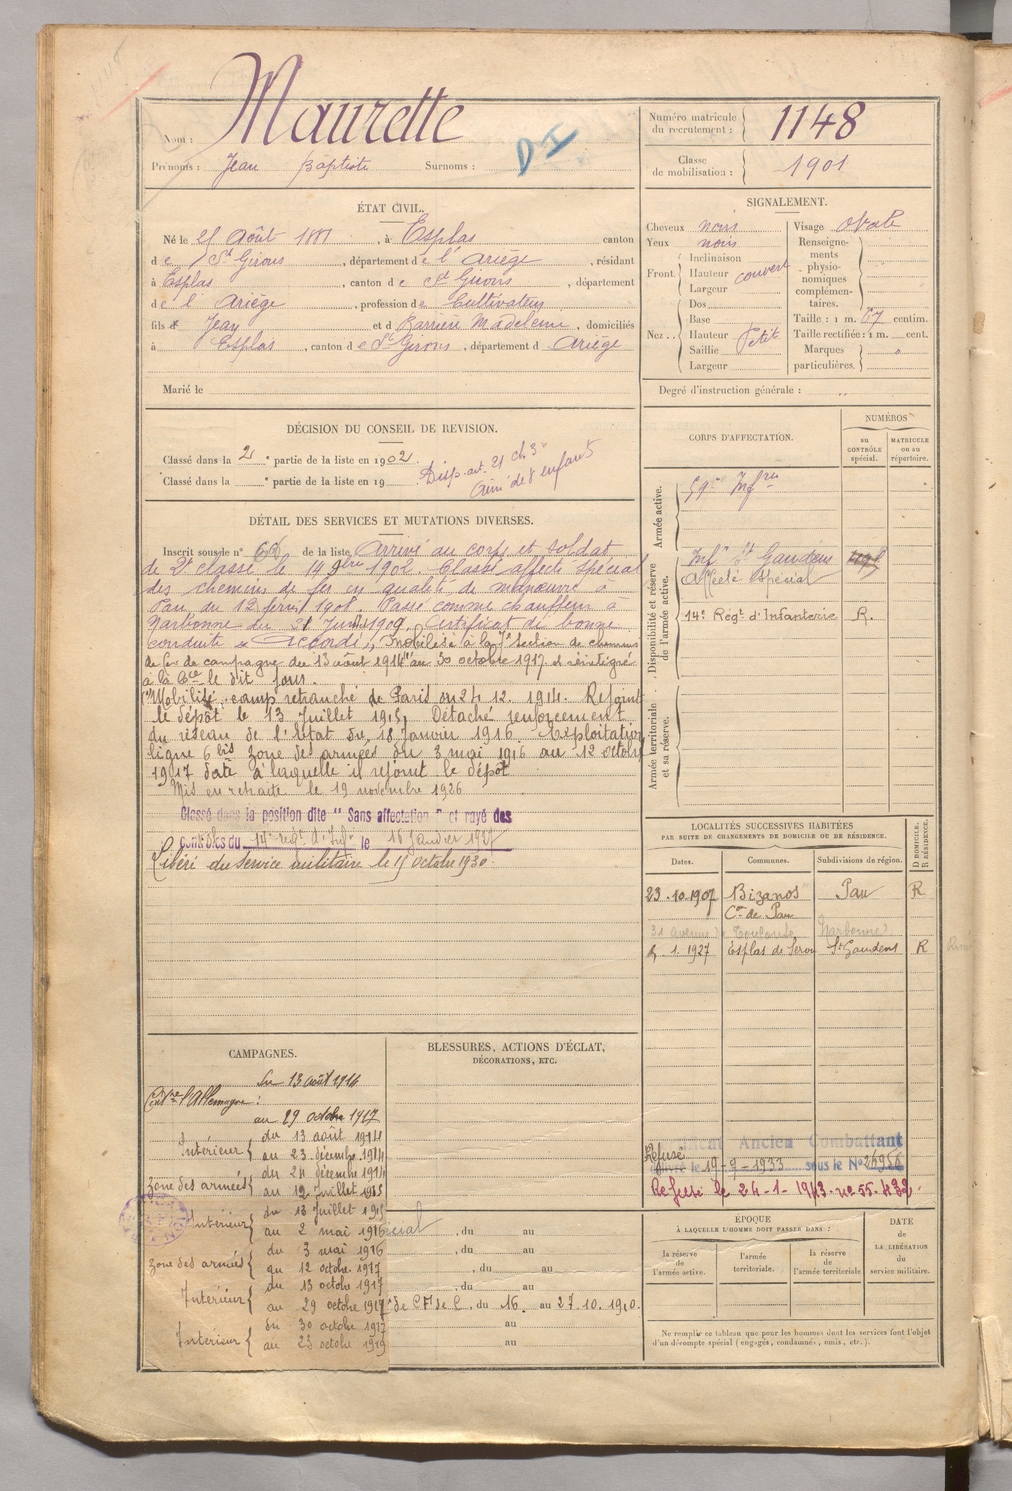 Nom : Maurette
Prénoms : Jean Baptiste Surnoms :
D I
Numéro matricule du recrutement : 1148
Classe de mobilisation : 1901
ÉTAT CIVIL.
Né le 25 Août 1881, à Esplas canton
de St Girons, département de l'Ariège, résidant
à Esplas, canton de St Girons, département
de l'Ariège, profession de Cultivateur
fils de Jean et d Madeleine, domiciliés
à Esplas, canton de St Girons, département d Ariège
Marié le
SIGNALEMENT.
Cheveux noirs
Yeux noirs
Front. Inclinaison
Hauteur couvert
Largeur
Nez.. Dos
Base
Hauteur Petit
Saillie
Largeur
Visage ovale
Renseignements physionomiques complémentaires.
Taille : 1 m. 67 centim.
Taille rectifiée : 1 m. cent.
Marques particulières.
Degré d'instruction générale :
DÉCISION DU CONSEIL DE REVISION.
Classé dans la 2e partie de la liste en 1902.
Classé dans la e partie de la liste en 19
Disp. art. 21 ch. 3°
Ainé de 8 enfants
CORPS D'AFFECTATION.
NUMÉROS
au CONTRÔLE spécial.
MATRICULE ou au répertoire.
Armée active.
59e Infrie
Disponibilité et réserve de l'armée active.
Inf St Gaudens
Affecté spécial
14e Régt d'Infanterie R.
Armée territoriale et sa réserve.
DÉTAIL DES SERVICES ET MUTATIONS DIVERSES.
Inscrit sous le n° de la liste Arrivé au corps et soldat
de 2e classe le 14 9bre 1902. Classé affecté spécial
des chemins de fer en qualité de manœuvre à
Pau du 12 1908. Passé comme chauffeur à
Narbonne du 1909. Certificat de bonne
conduite " Accordé ", Mobilisé à la 7e section de chemins
de fer de campagne du 13 août 1914 au 30 octobre 1917 et réintégré
à la Cie le dit jour.
Mobilisé, camp retranché de Paris du 24.12.1914. Rejoint
le dépôt le 13 Juillet 1915, Détaché renforcement
du réseau de l'Etat du 18 Janvier 1916. Exploitation
ligne 6 bis zone des armées du 3 mai 1916 au 12 octobre
1917 date à laquelle il rejoint le dépôt
Mis en retraite le 19 novembre 1926
Classé dans la position dite " Sans affectation " et rayé des
contrôles du 14e regt d'Infie le 18 Janvier 1927
Libéré du service militaire le 15 octobre 1930.
LOCALITÉS SUCCESSIVES HABITÉES
PAR SUITE DE CHANGEMENTS DE DOMICILE OU DE RÉSIDENCE.
Dates. Communes. Subdivisions de région. D DOMICILE. R RÉSIDENCE.
23.10.1907 Bizanos Pau R
Con de Pau
31 avenue de Toulouse Narbonne
1.1927 Esplas de Serou St Gaudens R
CAMPAGNES.
Contre l'Allemagne :
du 13 août 1914
au 29 octobre 1917
Intérieur du 13 août 1914
au 23 décembre 1914
Zone des armées du 24 décembre 1914
au 12 Juillet 1915
Intérieur du 13 Juillet 1915
au 2 mai 1916
Zone des armées du 3 mai 1916
au 12 octobre 1917
Intérieur du 13 octobre 1917
au 29 octobre 1917
Intérieur du 30 octobre 1917
au 23 octobre 1919
BLESSURES, ACTIONS D'ÉCLAT,
DÉCORATIONS, ETC.
, du au
, du au
, du au
de C. F. de C, du 16 au 27.10.1910.
au
au
Ancien Combattant
Refusé
le 19-9-1933 sous le N°
Refusé le 24-1-1943. n° 55.432.
ÉPOQUE
À LAQUELLE L'HOMME DOIT PASSER DANS :
la réserve de l'armée active.
l'armée territoriale.
la réserve de l'armée territoriale
DATE de LA LIBÉRATION du service militaire.
Ne remplir ce tableau que pour les hommes dont les services font l'objet
d'un décompte spécial (engagés, condamnés, omis, etc.).